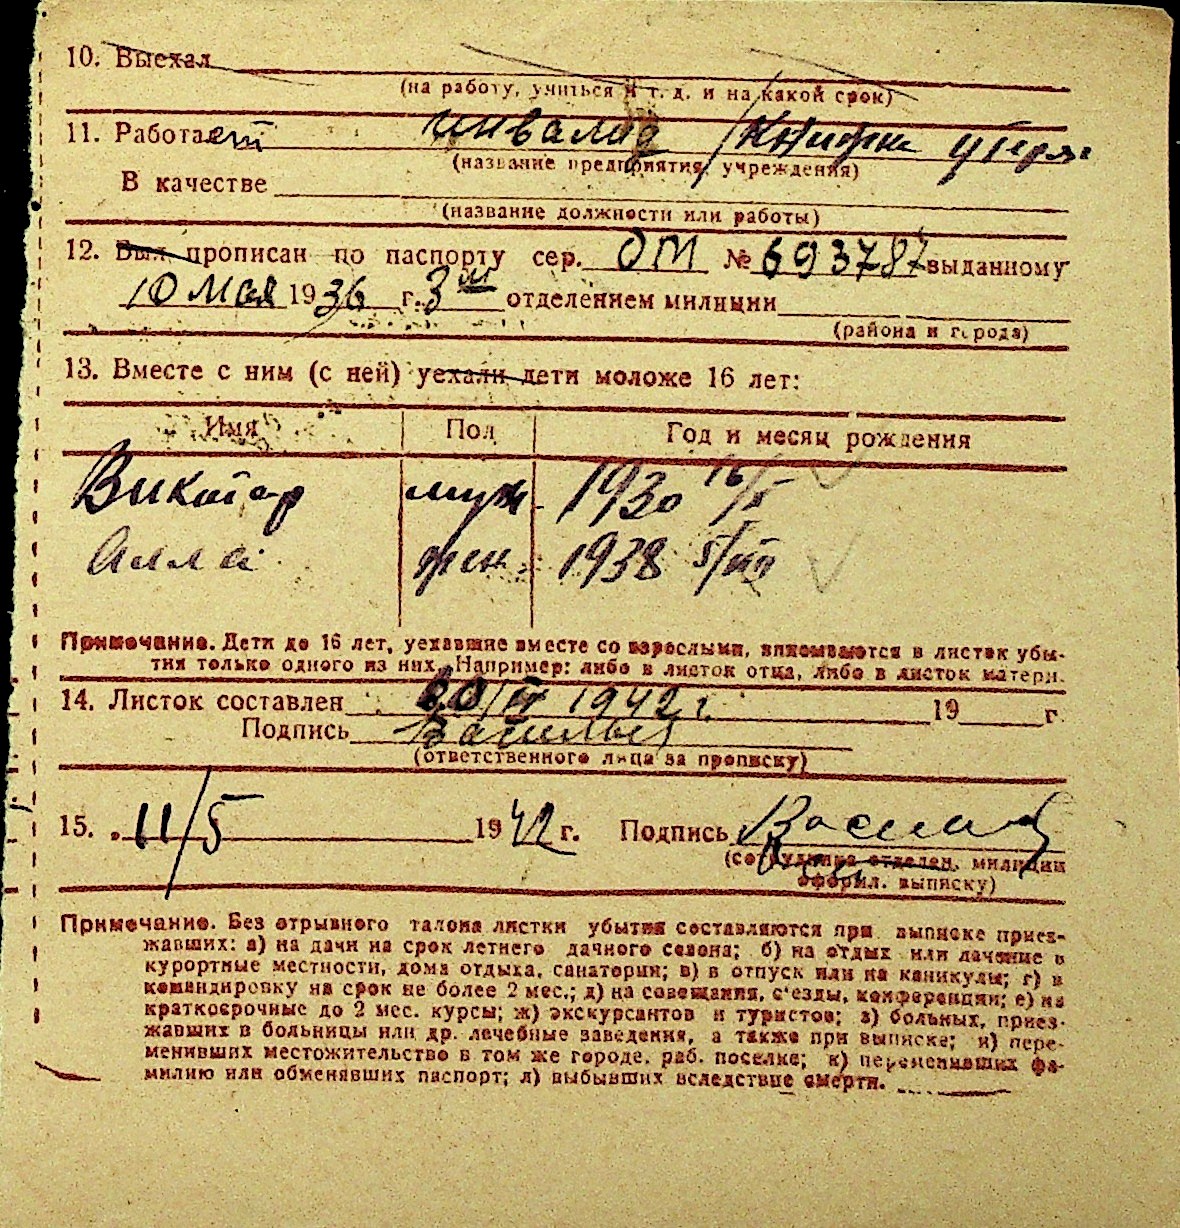 10. Выехал
(на работу, учиться и т. д. и на какой срок)
11. Работает инвалид /книжки утеря
(название предприятия, учреждения)
В качестве
(название должности или работы)
12. Был прописан по паспорту сер. ОМ № 693787 выданному
10 мая 1936 г. 3 м отделением милиции
(района и города)
13. Вместе с ним (с ней) уехали дети моложе 16 лет:
Имя Пол Год и месяц рождения
Виктор муж. 1930 16/V
Алла жен. 1938 5/VIII
Примечание. Дети до 16 лет, уехавшие вместе со взрослыми, вписываются в листок убы-
тия только одного из них. Например: либо в листок отца, либо в листок матери.
14. Листок составлен 1942 г. 19 г.
Подпись
(ответственного лица за прописку)
15. 11/5 1942 г. Подпись
(сотрудника отделен. милиции
оформл. выписку)
Примечание. Без отрывного талона листки убытия составляются при выписке приез-
жавших: а) на дачи на срок летнего дачного сезона; б) на отдых или лечение в
курортные местности, дома отдыха, санатории; в) в отпуск или на каникулы; г) в
командировку на срок не более 2 мес.; д) на совещания, с'езды, конференции; е) на
краткосрочные до 2 мес. курсы; ж) экскурсантов и туристов; з) больных, приез-
жавших в больницы или др. лечебные заведения, а также при выписке; и) пере-
менивших местожительство в том же городе, раб. поселке; к) переменивших фа-
милию или обменявших паспорт; л) выбывших вследствие смерти.